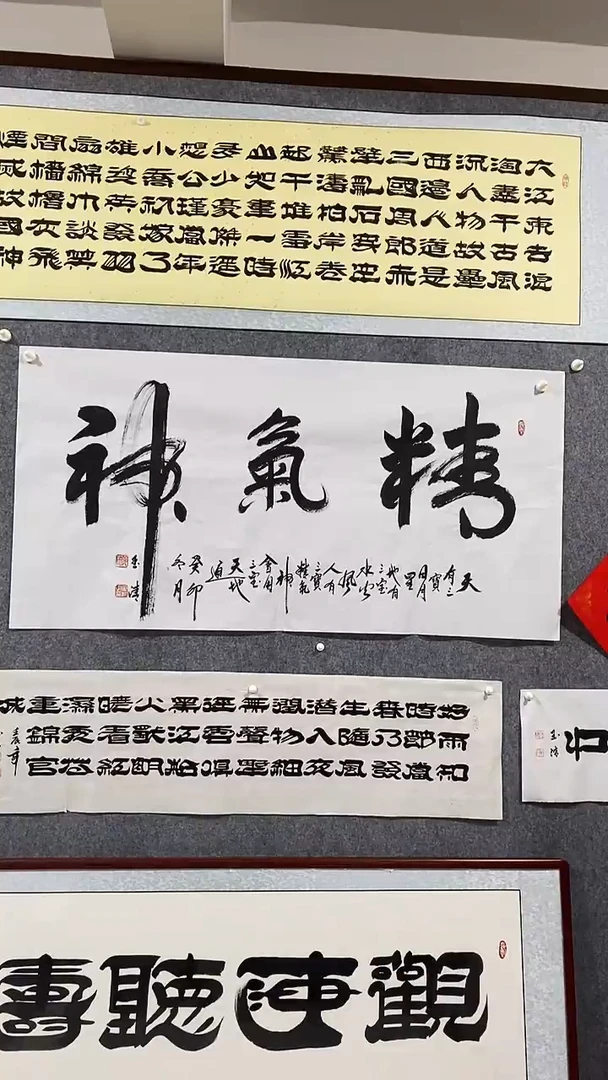 大江東去浪
淘盡千古風
流人物故壘
西邊人道是
三國周郎赤
壁亂石穿空
驚濤拍岸卷
起千堆雪江
山如畫一時
多少豪傑遙
想公瑾當年
小喬初嫁了
雄姿英發羽
扇綸巾談笑
間檣櫓灰飛
煙滅故國神
精氣神
天
有三
寶
日月
星
地有
三宝
水火
風
人有
三寶
精氣
神
會用
三宝
天地
通
癸卯
冬月
玉清
好雨知
時節當
春乃發
生隨風
潛入夜
潤物細
無聲野
徑雲俱
黑江船
火獨明
曉看紅
濕處花
重錦官
城
玉清
觀海聽濤